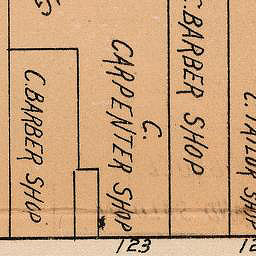 C. BARBER SHOP
C.
CARPENTER SHOP
C. BARBER SHOP
C. TAILOR SHOP
123
12